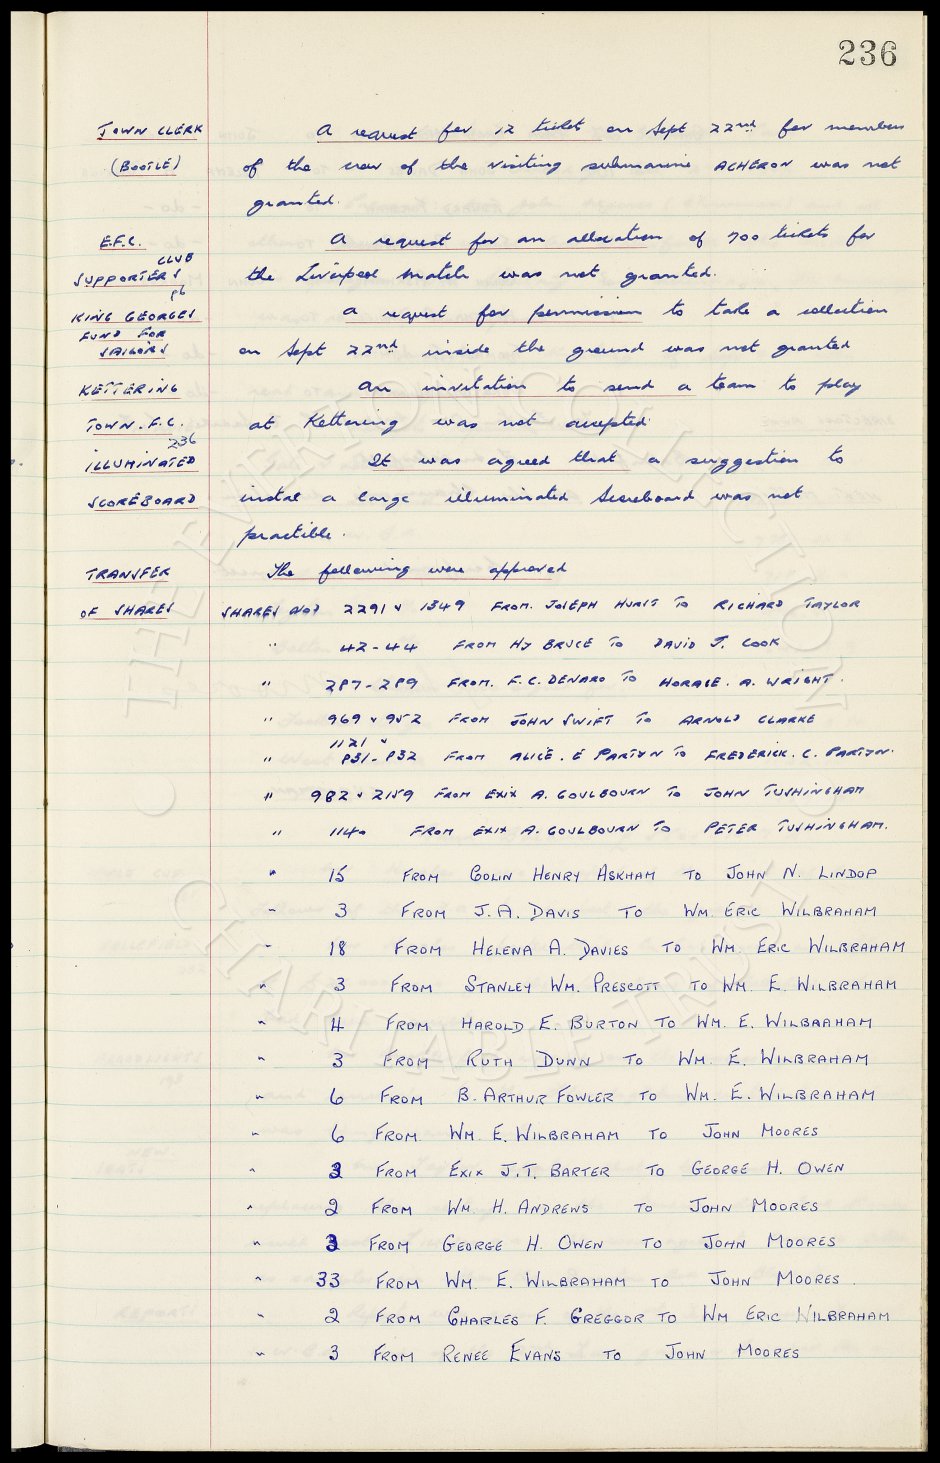 236
TOWN CLERK
(BOOTLE)
A request for 12 ticket on Sept 22nd for members
of the crew of the visiting submarine ACHERON was not
granted.
E.F.C.
CLUB
SUPPORTERS
A request for an allocation of 700 tickets for
the Liverpool match was not granted.
KING GEORGES
FUND FOR
SAILORS
A request for permission to take a collection
on Sept 22nd inside the ground was not granted
KETTERING
TOWN. F.C.
An invitation to send a team to play
at Kettering was not accepted.
236
ILLUMINATED
SCOREBOARD
It was agreed that a suggestion to
instal a large illuminated Scoreboard was not
practible.
TRANSFER
OF SHARES
The following were approved
SHARES NOS 2291 & 1349 FROM. JOSEPH HURST TO RICHARD TAYLOR
" 42-44 FROM HY BRUCE TO DAVID J. COOK
" 287-289 FROM. F.C. DENARO TO HORACE. A. WRIGHT.
" 969 & 952 FROM JOHN SWIFT TO ARNOLD CLARKE
1121 &
" 831-832 FROM ALICE. E PARTYN TO FREDERICK. C. PARTYN.
" 982 & 2159 FROM EXIX A. GOULBOURN TO JOHN TUSHINGHAM
" 1140 FROM EXIX A. GOULBOURN TO PETER TUSHINGHAM.
" 15 FROM COLIN HENRY ASKHAM TO JOHN N. LINDOP
" 3 FROM J.A. DAVIS TO WM. ERIC WILBRAHAM
" 18 FROM HELENA A. DAVIES TO WM. ERIC WILBRAHAM
" 3 FROM STANLEY WM. PRESCOTT TO WM. E. WILBRAHAM
" 4 FROM HAROLD E. BURTON TO WM. E. WILBRAHAM
" 3 FROM RUTH DUNN TO WM. E. WILBRAHAM
" 6 FROM B. ARTHUR FOWLER TO WM. E. WILBRAHAM
" 6 FROM WM. E. WILBRAHAM TO JOHN MOORES
" 3 FROM EXIX J.T. BARTER TO GEORGE H. OWEN
" 2 FROM WM. H. ANDREWS TO JOHN MOORES
" 3 FROM GEORGE H. OWEN TO JOHN MOORES
" 33 FROM WM. E. WILBRAHAM TO JOHN MOORES.
" 2 FROM CHARLES F. GREGGOR TO WM ERIC WILBRAHAM
" 3 FROM RENEE EVANS TO JOHN MOORES
THE EVERTON COLLECTION
CHARITABLE TRUST